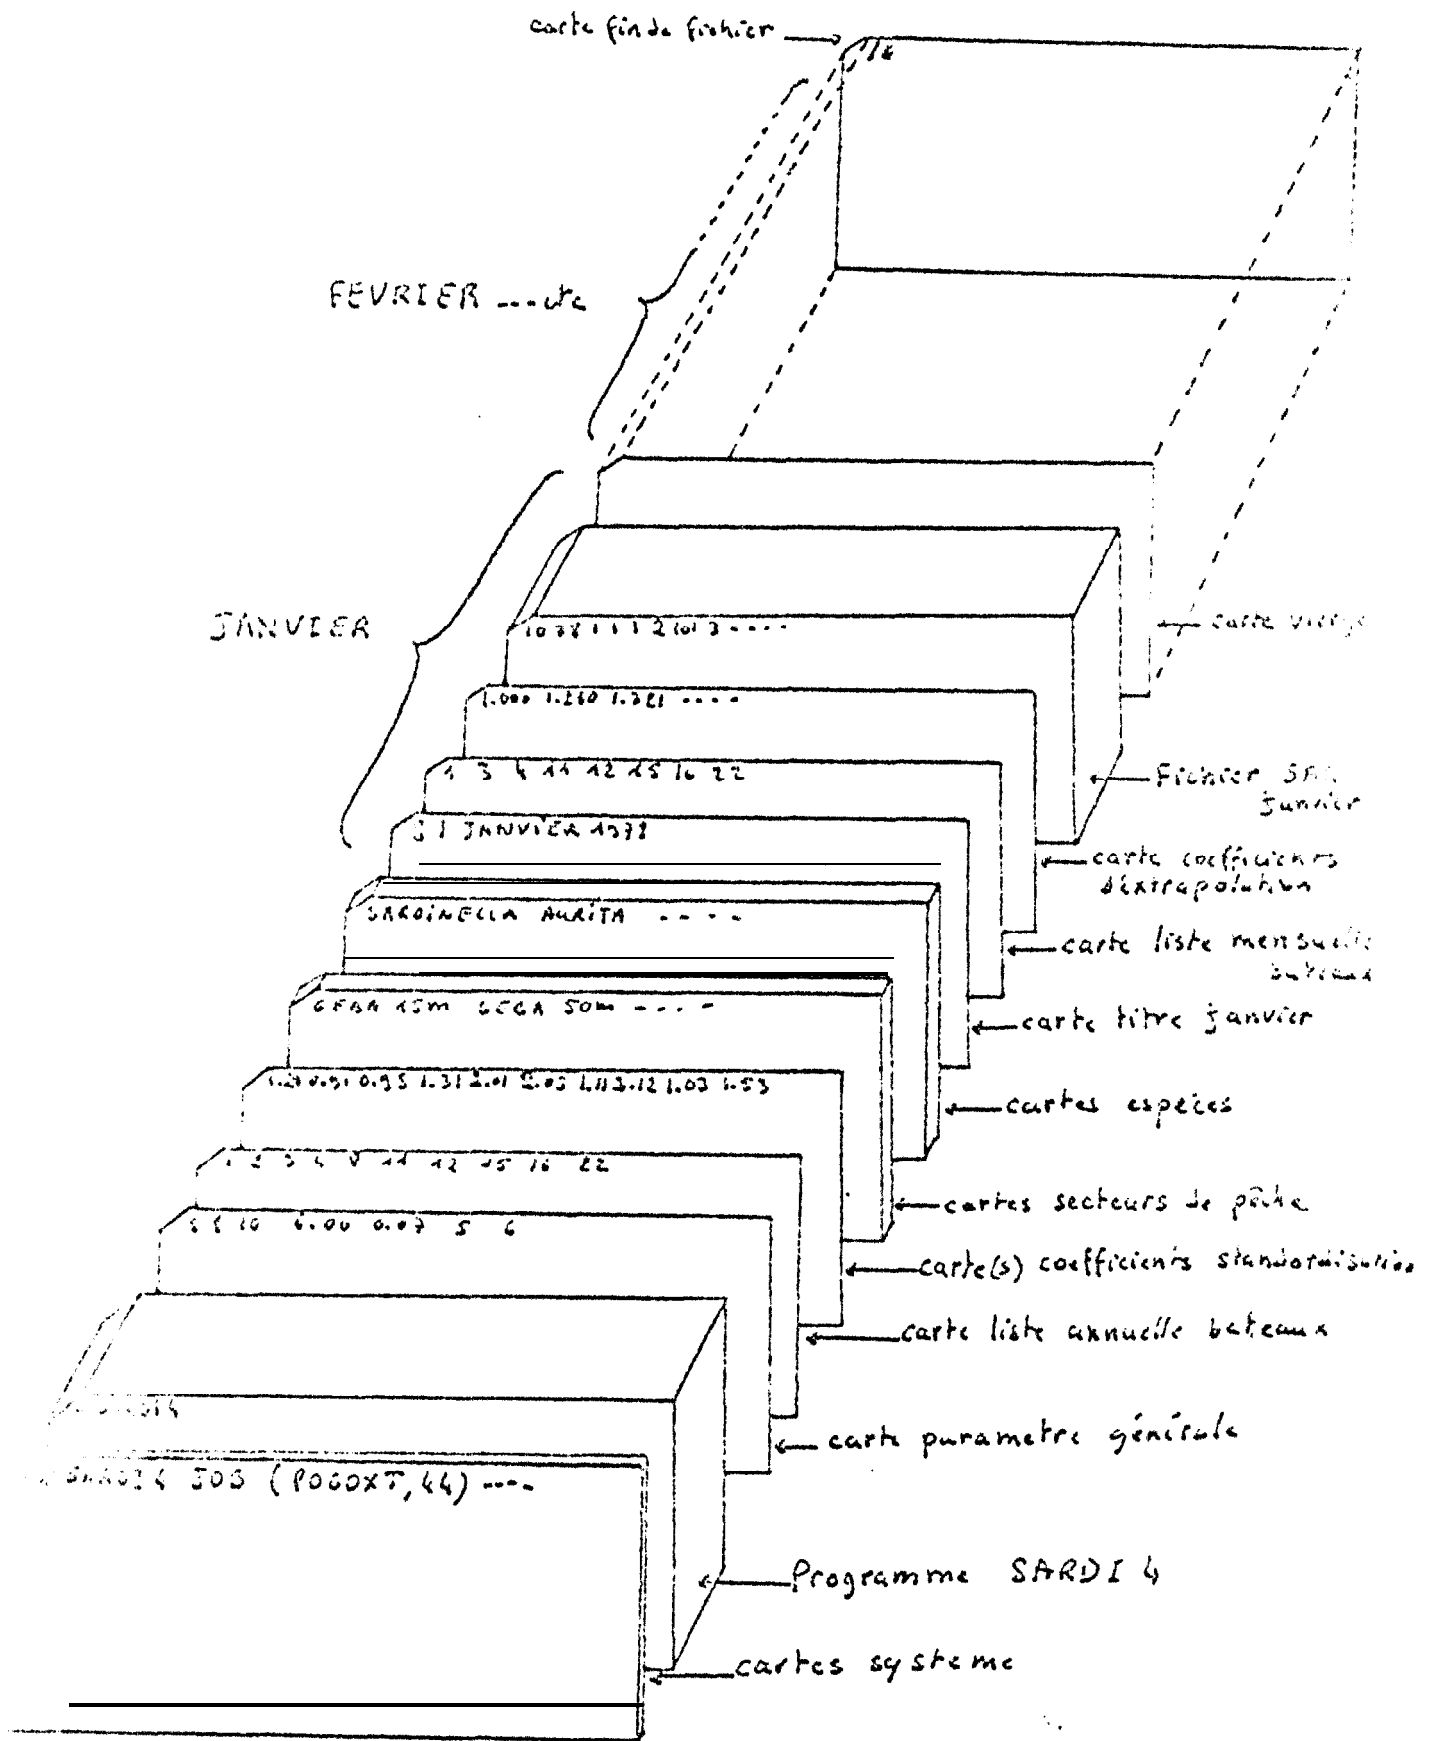 carte fin de fichier
/*
FEVRIER ---- etc
JANVIER
carte vierge
1.000 1.260 1.321 ----
1 3 4 11 12 15 16 22
Fichier
janvier
JANVIER 1978
carte coefficients
d'extrapolation
SARDINELLA AURITA ----
carte liste mensuelle
bateaux
15m 50m ----
carte titre janvier
0.95 1.31 1.03 1.53
cartes espèces
11 12 15 16 22
cartes secteurs de pêche
10 0.07 5 6
carte(s) coefficients standardisation
carte liste annuelle bateaux
carte parametre générale
SARDI4 JOB (POGOXT,44) ----
Programme SARDI 4
cartes systeme